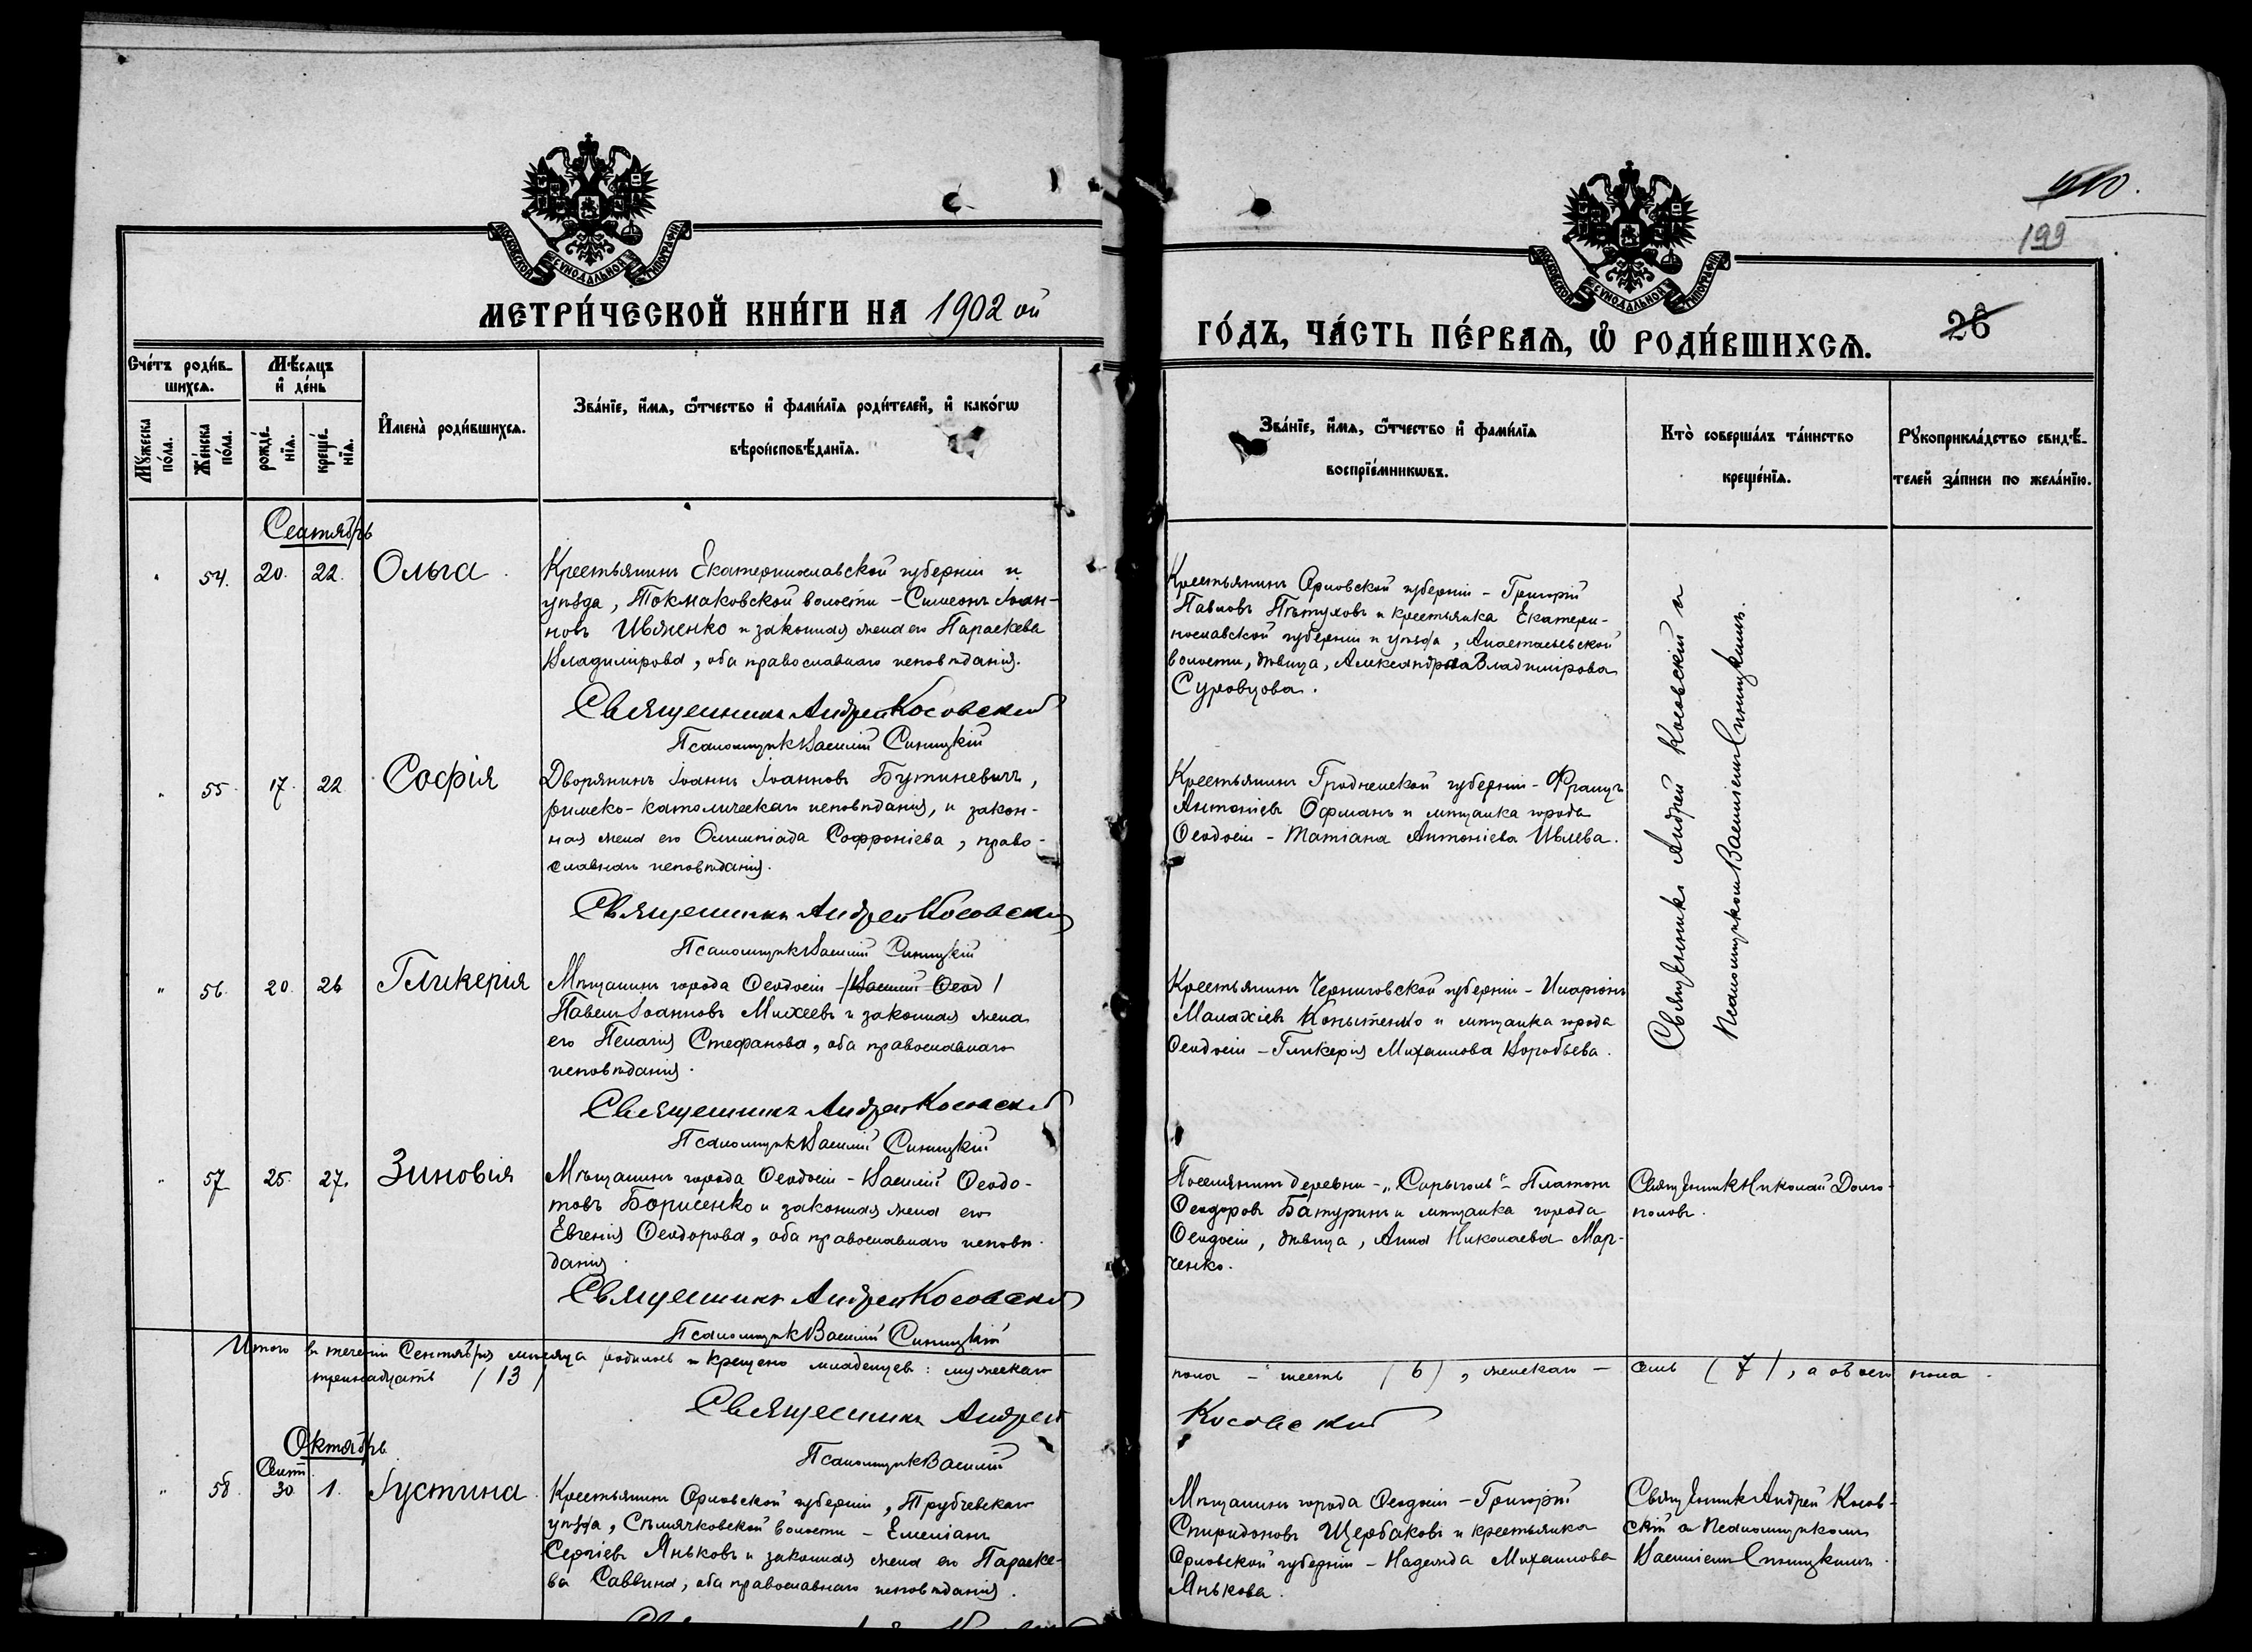 510.
199
МОСКОВСКОЙ СѴНОДАЛЬНОЙ ТИПОГРАФІИ
МОСКОВСКОЙ СѴНОДАЛЬНОЙ ТИПОГРАФІИ
МЕТРИ́ЧЕСКОЙ КНИ́ГИ НА 1902 ой
ГО́ДЪ, ЧА́СТЬ ПЕ́РВАѦ, Ѡ РОДИ́ВШИХСѦ.
26
Сче́тъ роди́в-
шихсѧ.
Мѣ́сѧцъ
и҆ де́нь
Мꙋ́жеска
по́ла.
Же́нска
по́ла.
рожде́-
нїѧ.
креще́-
нїѧ.
И҆мена̀ роди́вшихсѧ.
Зва́нїе, и҆́мѧ, ѻ҆́тчество и҆ фами́лїѧ роди́телей, и҆ како́гѡ
вѣроисповѣ́данїѧ.
Зва́нїе, и҆́мѧ, ѻ҆́тчество и҆ фами́лїѧ
воспрїе́мникѡвъ.
Кто̀ соверша́лъ та́инство
креще́нїѧ.
Рꙋкоприкла́дство свидѣ́-
телей за́писи по жела́нїю.
Сентябрь
" 54. 20. 22. Ольга.
Крестьянинъ Екатеринославской губерніи и
уѣзда, Токмаковской волости - Симеонъ Іоан-
новъ Ивженко и законная жена его Параскева
Владимірова, оба православнаго исповѣданія.
Священникъ Андрей Косовскій
Псаломщикъ Василій Синицкій
Крестьянинъ Орловской губерніи - Григорій
Павловъ Пѣтуховъ и крестьянка Екатери-
нославской губерніи и уѣзда, Анастасьевской
волости, дѣвица, Александра Владимірова
Суровцова.
Священникъ Андрей Косовскій а
Псаломщикомъ Василіемъ Синицкимъ.
" 55. 17. 22 Софія
Дворянинъ Іоаннъ Іоанновъ Бутиневичъ,
римско-католическаго исповѣданія, и закон-
ная жена его Олимпіада Софроніева, право-
славнаго исповѣданія.
Священникъ Андрей Косовскій
Псаломщикъ Василій Синицкій
Крестьянинъ Гродненской губерніи - Францъ
Антоніевъ Офманъ и мѣщанка города
Ѳеодосіи - Татіана Антоніева Ивлева.
" 56. 20. 26 Гликерія
Мѣщанинъ города Ѳеодосіи - /Василій Ѳеод/
Павелъ Іоанновъ Михеевъ и законная жена
его Пелагія Стефанова, оба православнаго
исповѣданія.
Священникъ Андрей Косовскій
Псаломщикъ Василій Синицкій
Крестьянинъ Черниговской губерніи - Иларіонъ
Малахіевъ Копытенко и мѣщанка города
Ѳеодосіи - Гликерія Михаилова Воробьева.
" 57 25. 27. Зиновія
Мѣщанинъ города Ѳеодосіи - Василій Ѳеодо-
товъ Борисенко и законная жена его
Евгенія Ѳеодорова, оба православнаго исповѣ-
данія.
Священникъ Андрей Косовскій
Псаломщикъ Василій Синицкій
Поселянинъ деревни - „Сарыголь“ - Платонъ
Ѳеодоровъ Батуринъ и мѣщанка города
Ѳеодосіи, дѣвица, Анна Николаева Мар-
ченко.
Священникъ Николай Долго-
половъ.
Итого въ теченіи Сентября мѣсяца родилось и крещено младенцевъ: мужескаго
пола - шесть (6), женскаго - семь (7), а обоего пола.
тринадцать (13)
Священникъ Андрей
Косовскій
Псаломщикъ Василій
Октябрь
" 58. Сент. 30 1. Іустина.
Крестьянинъ Орловской губерніи, Трубчевскаго
уѣзда, Сѣмячковской волости - Емеліанъ
Сергіевъ Яньковъ и законная жена его Параске-
ва Саввина, оба православнаго исповѣданія.
Мѣщанинъ города Ѳеодосіи - Григорій
Спиридоновъ Щербаковъ и крестьянка
Орловской губерніи - Надежда Михаилова
Янькова.
Священникъ Андрей Косов-
скій съ Псаломщикомъ
Василіемъ Синицкимъ.